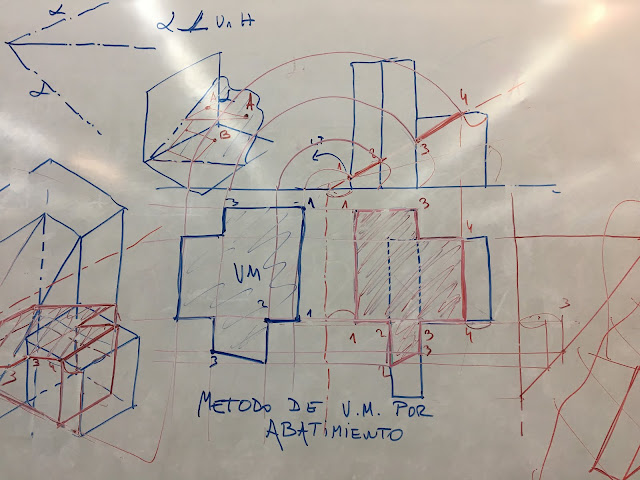 α
α ⊥ V ∩ H
α
A
A
B
4
3
2
1
3
1
1
3
VM
4
2
1
3
1
2
3
4
3
2
3
3
4
METODO DE V.M. POR
ABATIMIENTO